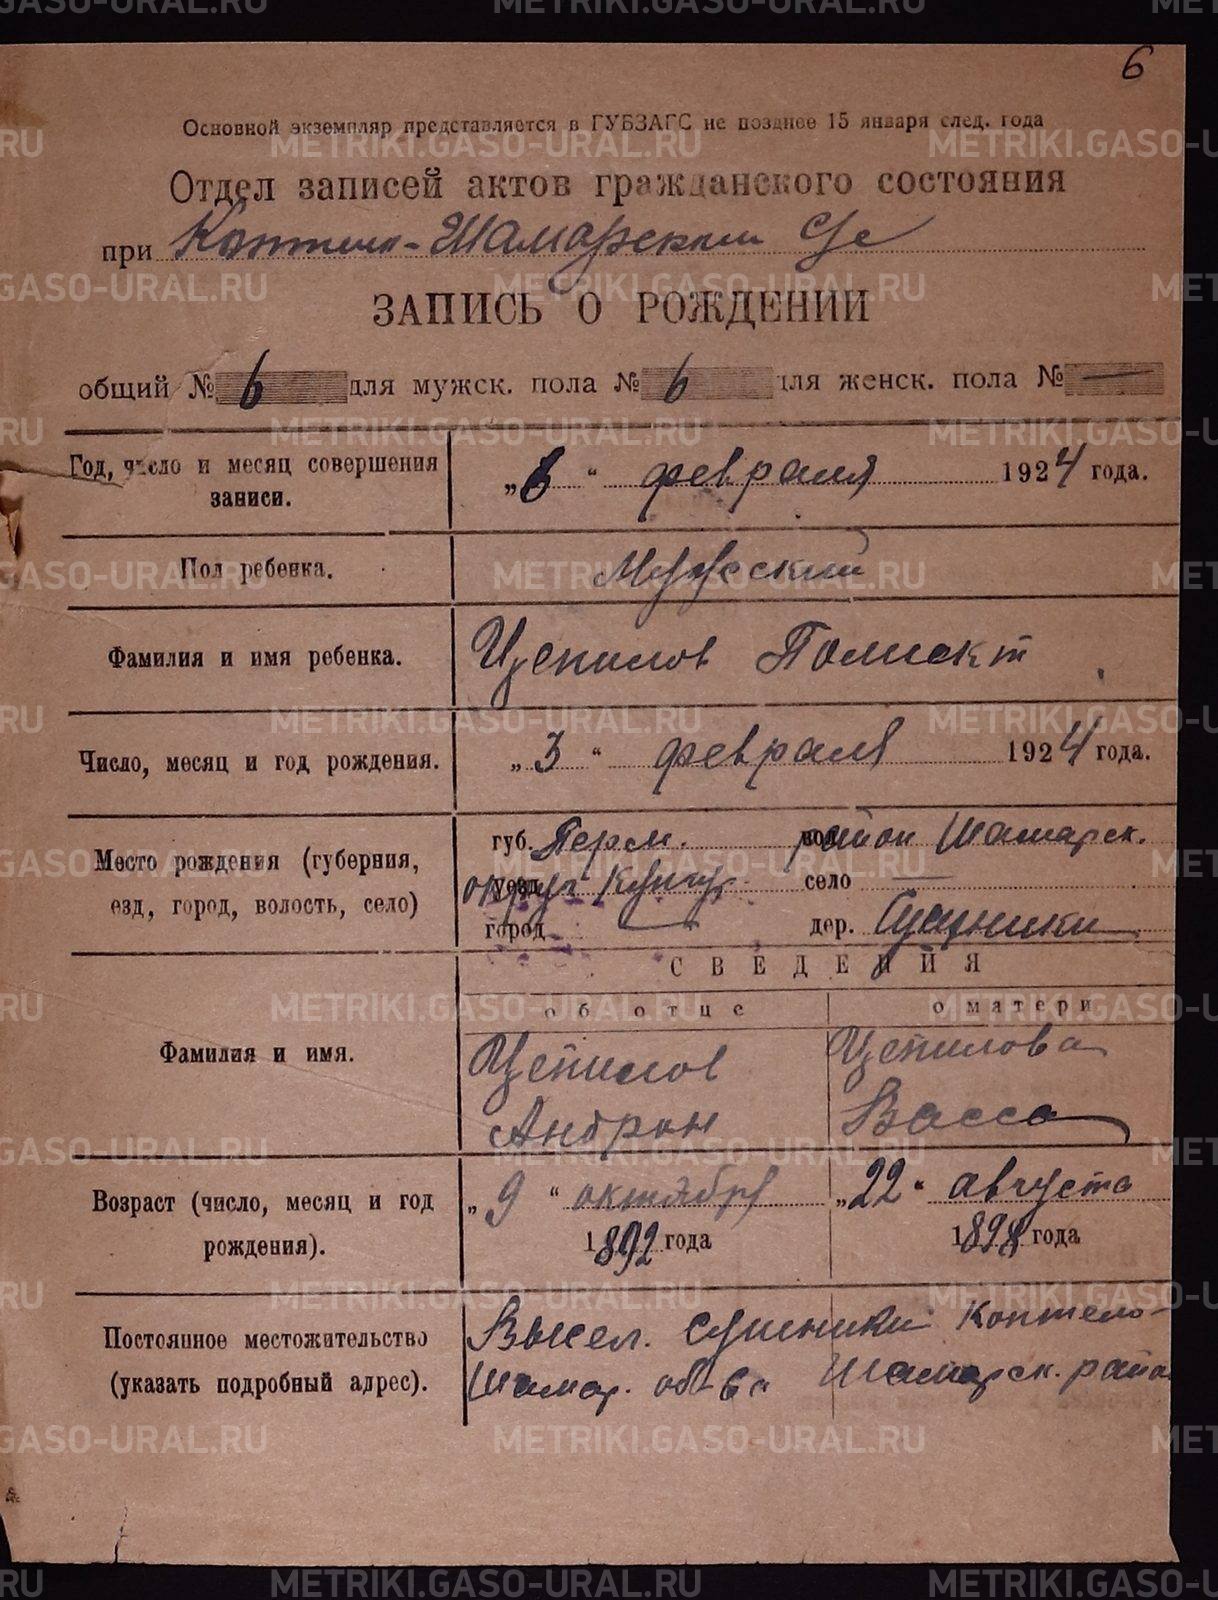 6
Основной экземпляр представляется в ГУБЗАГС не позднее 15 января след. года
Отдел записей актов гражданского состояния
при Коптело-Шамарском с/с
ЗАПИСЬ О РОЖДЕНИИ
общий № 6 для мужск. пола № 6 для женск. пола № —
Год, число и месяц совершения записи. „6“ февраля 1924 года.
Пол ребенка. Мужской
Фамилия и имя ребенка. Цепилов Полиект
Число, месяц и год рождения. „3“ февраля 1924 года.
Место рождения (губерния, губ. Перм. район Шамарск.
езд, город, волость, село) округ Кунгур село —
город — дер. Сушники
СВЕДЕНИЯ
об отце о матери
Фамилия и имя. Цепилов Цепилова
Андрон Васса
Возраст (число, месяц и год „9“ октября „22“ августа
рождения). 1892 года 1898 года
Постоянное местожительство Высел. Сушники Коптело-
(указать подробный адрес). Шамар. об-ва Шамарск. район
METRIKI.GASO-URAL.RU